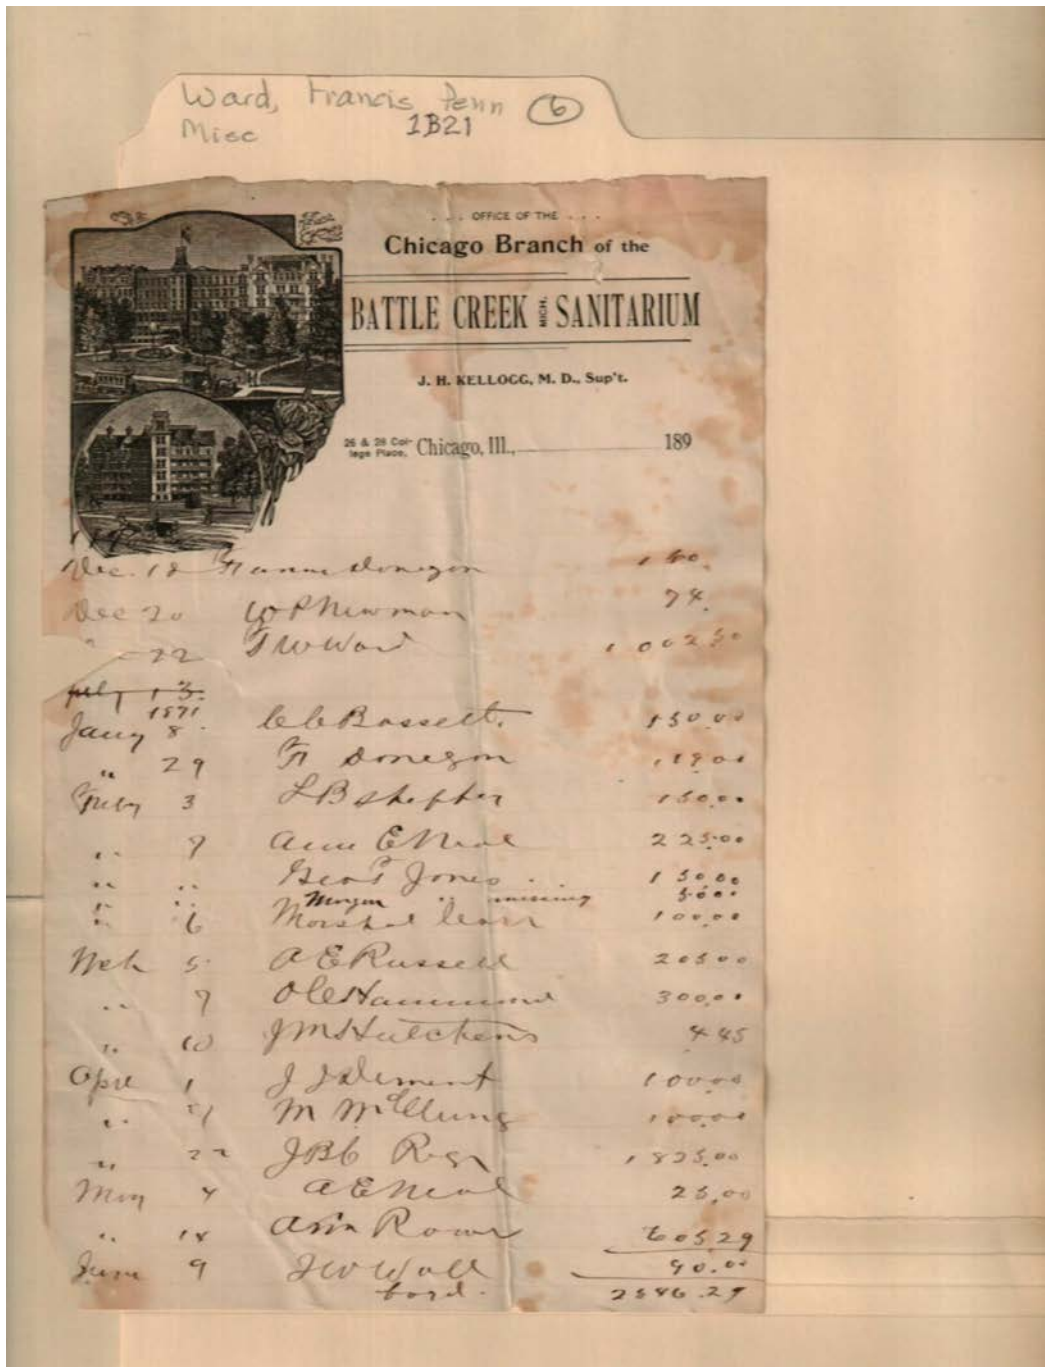 Ward, Francis Penn 6
Misc 1B21
. . . OFFICE OF THE . . .
Chicago Branch of the
BATTLE CREEK MICH. SANITARIUM
J. H. KELLOGG, M. D., Sup't.
26 & 28 Col-
lege Place, Chicago, Ill., 189
Dec. 18 Donegon
Dec 20 W P Newman 74.
" 22 T W Ward 1 002 50
1891
Jany 8 C C Bassett. 150.00
" 29 Donegon
Feby 3 L B 150.00
" 7 Ann E Neal 225.00
" " Geo T Jones 150.00
" " Morgan " missing
" 6 100.00
Mch 5 A E Russell 205 00
" 7 O C Hammond 300.00
" 10 J M Hutchens 445
April 1 J J Dement 100.00
" M McClung 100.00
" 22 J B C 1825.00
May 4 A E Neal 25.00
" 18 Ann Rowe 605.29
June 9 90.00
ford. 2546.29